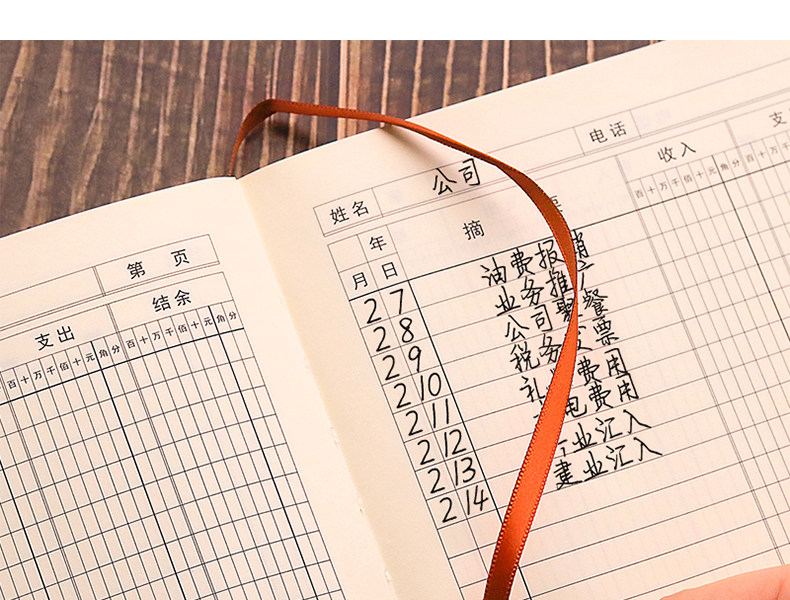 第 页
支出 结余
百十万千佰十元角分 百十万千佰十元角分
姓名 公司 电话
年 摘 收入 支
月 日 百十万千佰十元角分 百十万千
2 7 油费报销
2 8 业务推广
2 9 公司聚餐
2 10 税务发票
2 11 礼 费用
2 12 电费用
2 13 业汇入
2 14 建业汇入